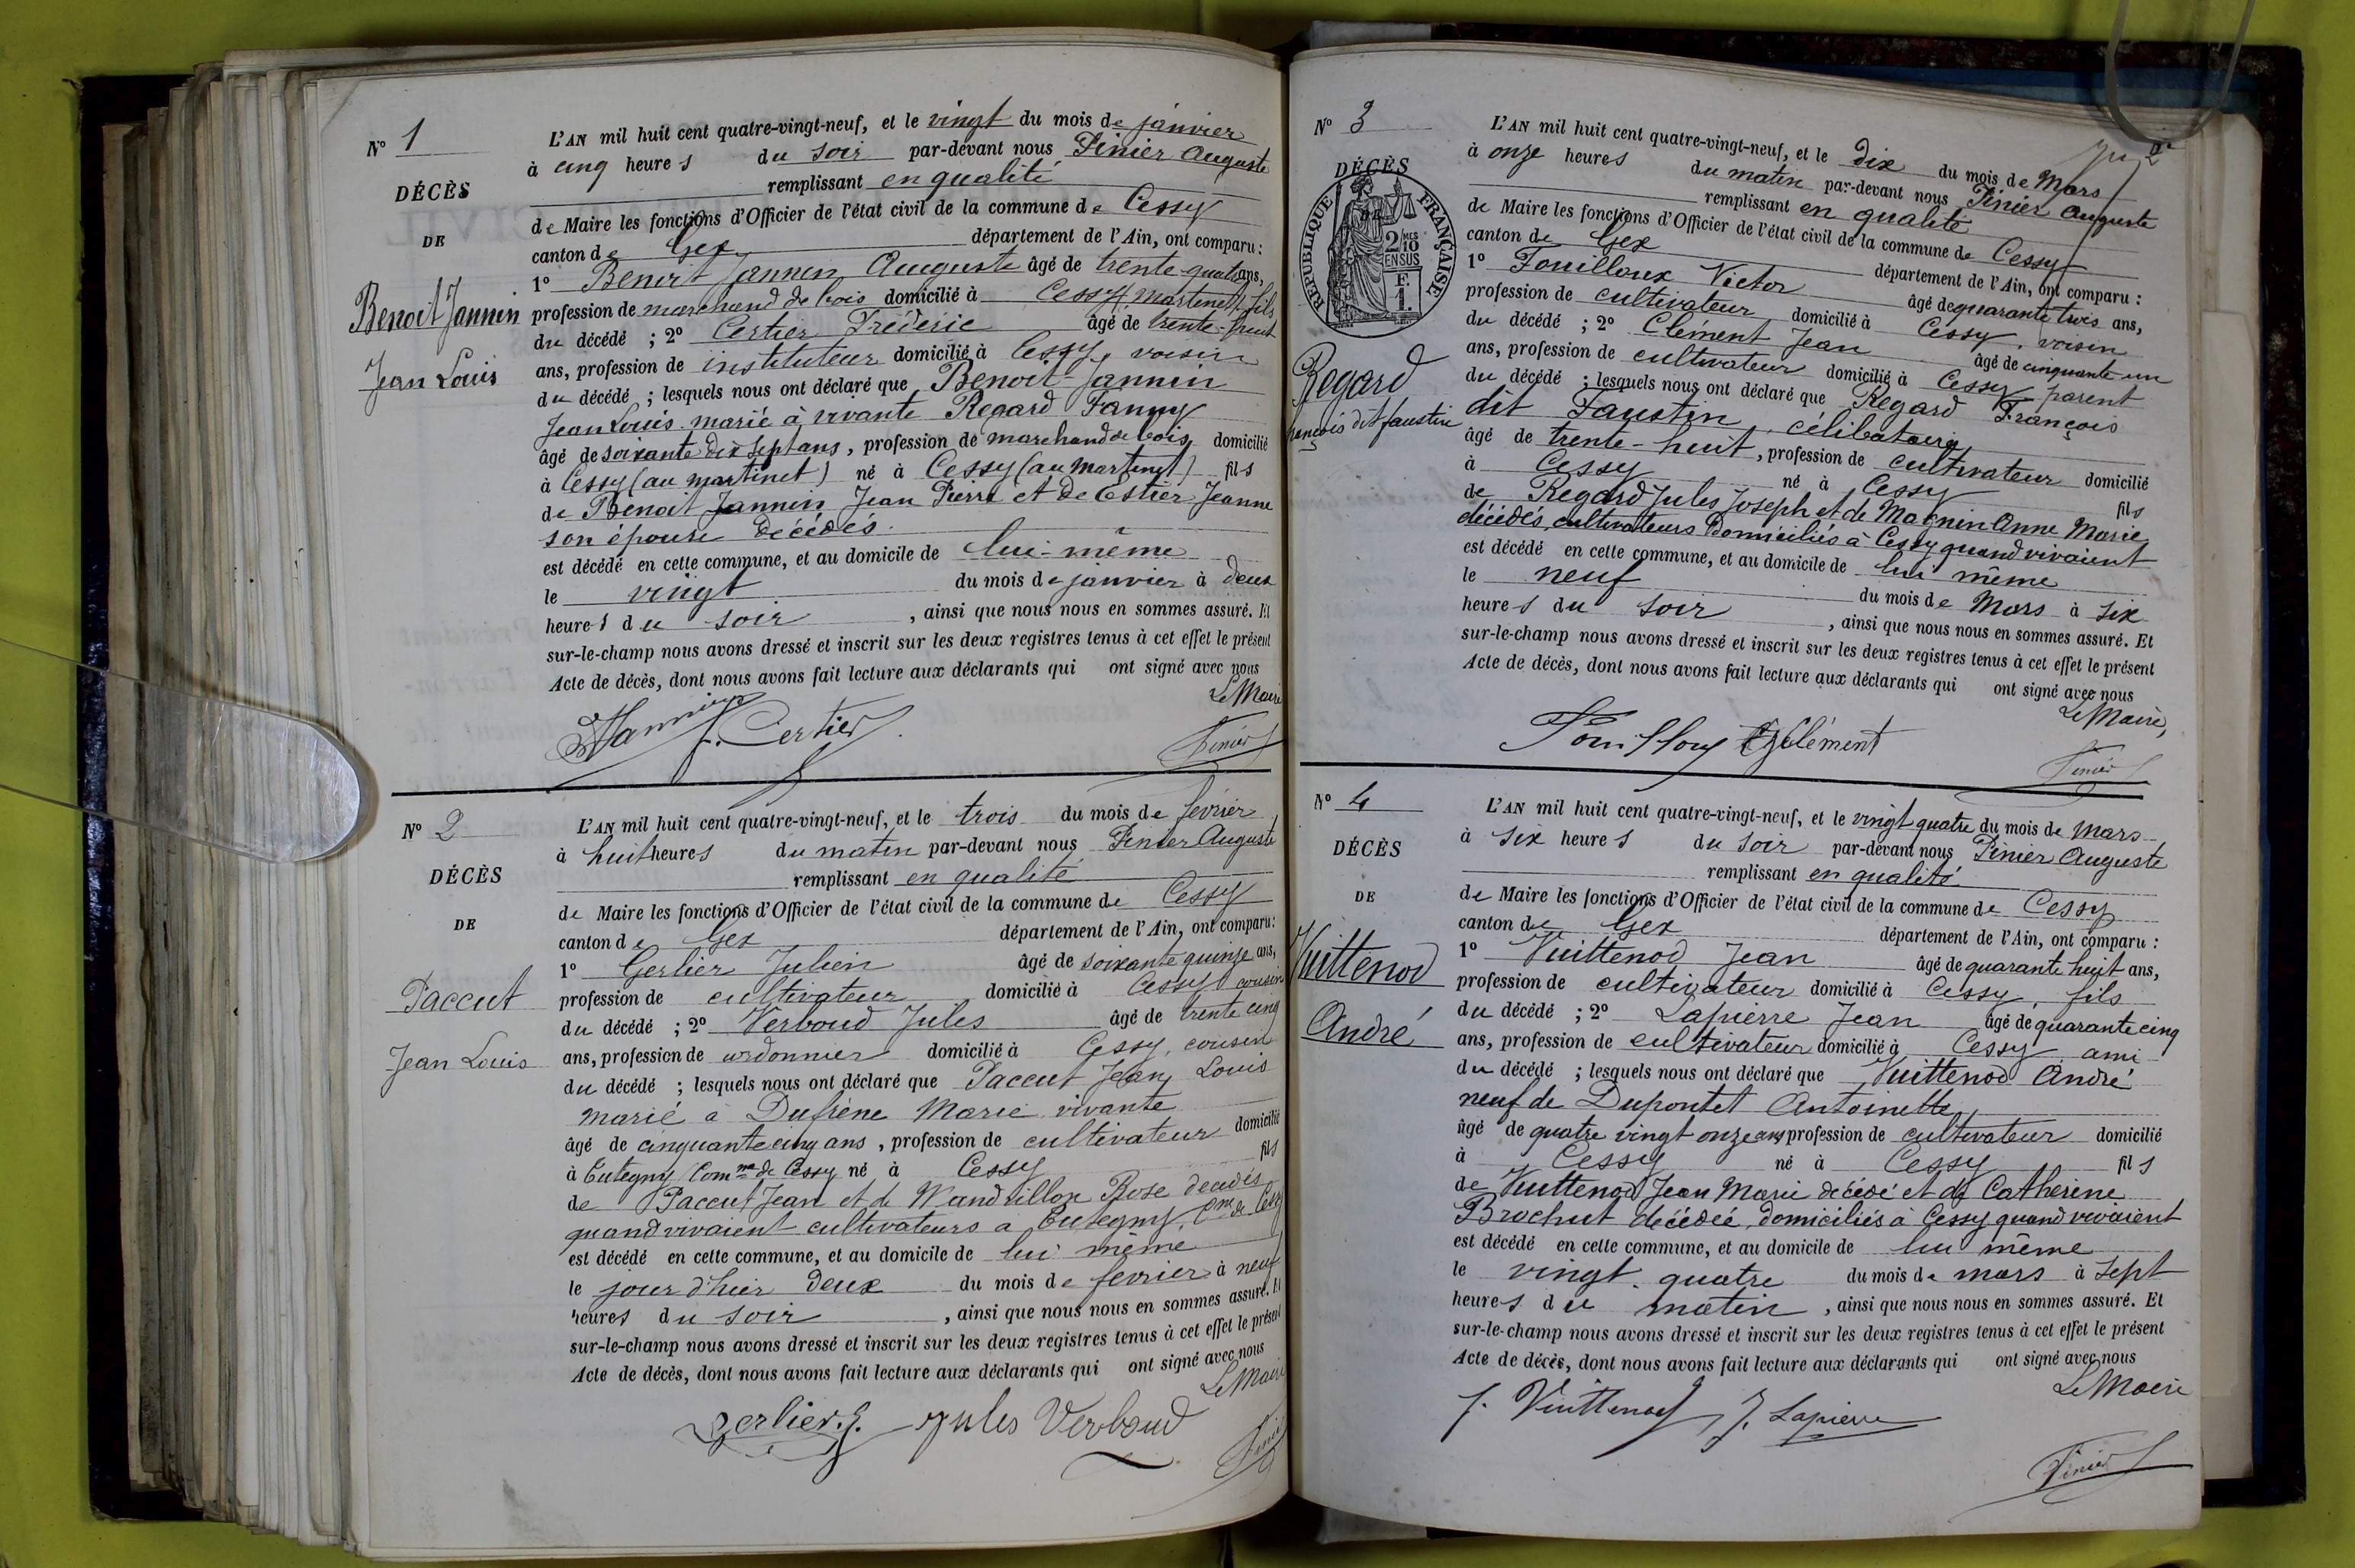 N° 1
DÉCÈS
DE
Benoit Jannin
Jean Louis
L'AN mil huit cent quatre-vingt-neuf, et le vingt du mois de janvier
à cinq heures du soir par-devant nous Pinier Auguste
remplissant en qualité
de Maire les fonctions d'Officier de l'état civil de la commune de Cessy
canton de Gex département de l'Ain, ont comparu :
1° Benoit Jannin Auguste âgé de trente-quatre ans,
profession de marchand de bois domicilié à Cessy (martinet) fils
du décédé ; 2° Certier Fréderic âgé de trente-huit
ans, profession de instituteur domicilié à Cessy, voisin
du décédé ; lesquels nous ont déclaré que Benoit-Jannin
Jean Louis marié à vivante Regard Fanny
âgé de soixante dix sept ans, profession de marchand de bois domicilié
à Cessy (au martinet) né à Cessy (au Martinet) fils
de Benoit Jannin Jean Pierre et de Estier Jeanne
son épouse décédés
est décédé en cette commune, et au domicile de lui-même
le vingt du mois de janvier à deux
heures du soir, ainsi que nous nous en sommes assuré. Et
sur-le-champ nous avons dressé et inscrit sur les deux registres tenus à cet effet le présent
Acte de décès, dont nous avons fait lecture aux déclarants qui ont signé avec nous
Le Maire
Jannin f. Certier
Pinier
N° 2
DÉCÈS
DE
Paccut
Jean Louis
L'AN mil huit cent quatre-vingt-neuf, et le trois du mois de février
à huit heures du matin par-devant nous Pinier Auguste
remplissant en qualité
de Maire les fonctions d'Officier de l'état civil de la commune de Cessy
canton de Gex département de l'Ain, ont comparu :
1° Gerlier Julien âgé de soixante quinze ans,
profession de cultivateur domicilié à Cessy cousin
du décédé ; 2° Verboud Jules âgé de trente cinq
ans, profession de cordonnier domicilié à Cessy, cousin
du décédé ; lesquels nous ont déclaré que Paccut Jean Louis
marié à Dufrène Marie vivante
âgé de cinquante cinq ans, profession de cultivateur domicilié
à Tutegny Comne de Cessy né à Cessy fils
de Paccut Jean et de Wandrillon Rose décédés
quand vivaient cultivateurs a Tutegny, Cne de Cessy
est décédé en cette commune, et au domicile de lui même
le jour d'hier deux du mois de fevrier à neuf
heures du soir, ainsi que nous nous en sommes assuré. Et
sur-le-champ nous avons dressé et inscrit sur les deux registres tenus à cet effet le présent
Acte de décès, dont nous avons fait lecture aux déclarants qui ont signé avec nous
Le Maire
Gerlier. J. Jules Verboud
Pinier
N° 3
DÉCÈS
RÉPUBLIQUE FRANÇAISE
2/10 MES
EN SUS
F.
1.
Regard
françois dit faustin
L'AN mil huit cent quatre-vingt-neuf, et le dix du mois de Mars
à onze heures du matin par-devant nous Pinier Auguste
remplissant en qualité
de Maire les fonctions d'Officier de l'état civil de la commune de Cessy
canton de Gex département de l'Ain, ont comparu :
1° Fouilloux Victor âgé de quarante trois ans,
profession de cultivateur domicilié à Cessy, voisin
du décédé ; 2° Clément Jean âgé de cinquante un
ans, profession de cultivateur domicilié à Cessy parent
du décédé ; lesquels nous ont déclaré que Regard François
dit Faustin, célibataire
âgé de trente-huit, profession de cultivateur domicilié
à Cessy né à Cessy fils
de Regard Jules Joseph et de Magnin Anne Marie
décédés, cultivateurs domiciliés à Cessy quand vivaient
est décédé en cette commune, et au domicile de lui même
le neuf du mois de Mars à six
heures du soir, ainsi que nous nous en sommes assuré. Et
sur-le-champ nous avons dressé et inscrit sur les deux registres tenus à cet effet le présent
Acte de décès, dont nous avons fait lecture aux déclarants qui ont signé avec nous
Le Maire,
Fouilloux Clément
Pinier
N° 4
DÉCÈS
DE
Vuittenod
André
L'AN mil huit cent quatre-vingt-neuf, et le vingt quatre du mois de mars
à six heures du soir par-devant nous Pinier Auguste
remplissant en qualité
de Maire les fonctions d'Officier de l'état civil de la commune de Cessy
canton de Gex département de l'Ain, ont comparu :
1° Vuittenod Jean âgé de quarante huit ans,
profession de cultivateur domicilié à Cessy, fils
du décédé ; 2° Lapierre Jean âgé de quarante cinq
ans, profession de cultivateur domicilié à Cessy ami
du décédé ; lesquels nous ont déclaré que Vuittenod André
neuf de Dupontet Antoinette
âgé de quatre vingt onze ans profession de cultivateur domicilié
à Cessy né à Cessy fils
de Vuittenod Jean Marie décédé et de Catherine
Brochut décédée, domiciliés à Cessy quand vivaient
est décédé en cette commune, et au domicile de lui même
le vingt quatre du mois de mars à sept
heures du matin, ainsi que nous nous en sommes assuré. Et
sur-le-champ nous avons dressé et inscrit sur les deux registres tenus à cet effet le présent
Acte de décès, dont nous avons fait lecture aux déclarants qui ont signé avec nous
Le Maire
J. Vuittenod J. Lapierre
Pinier